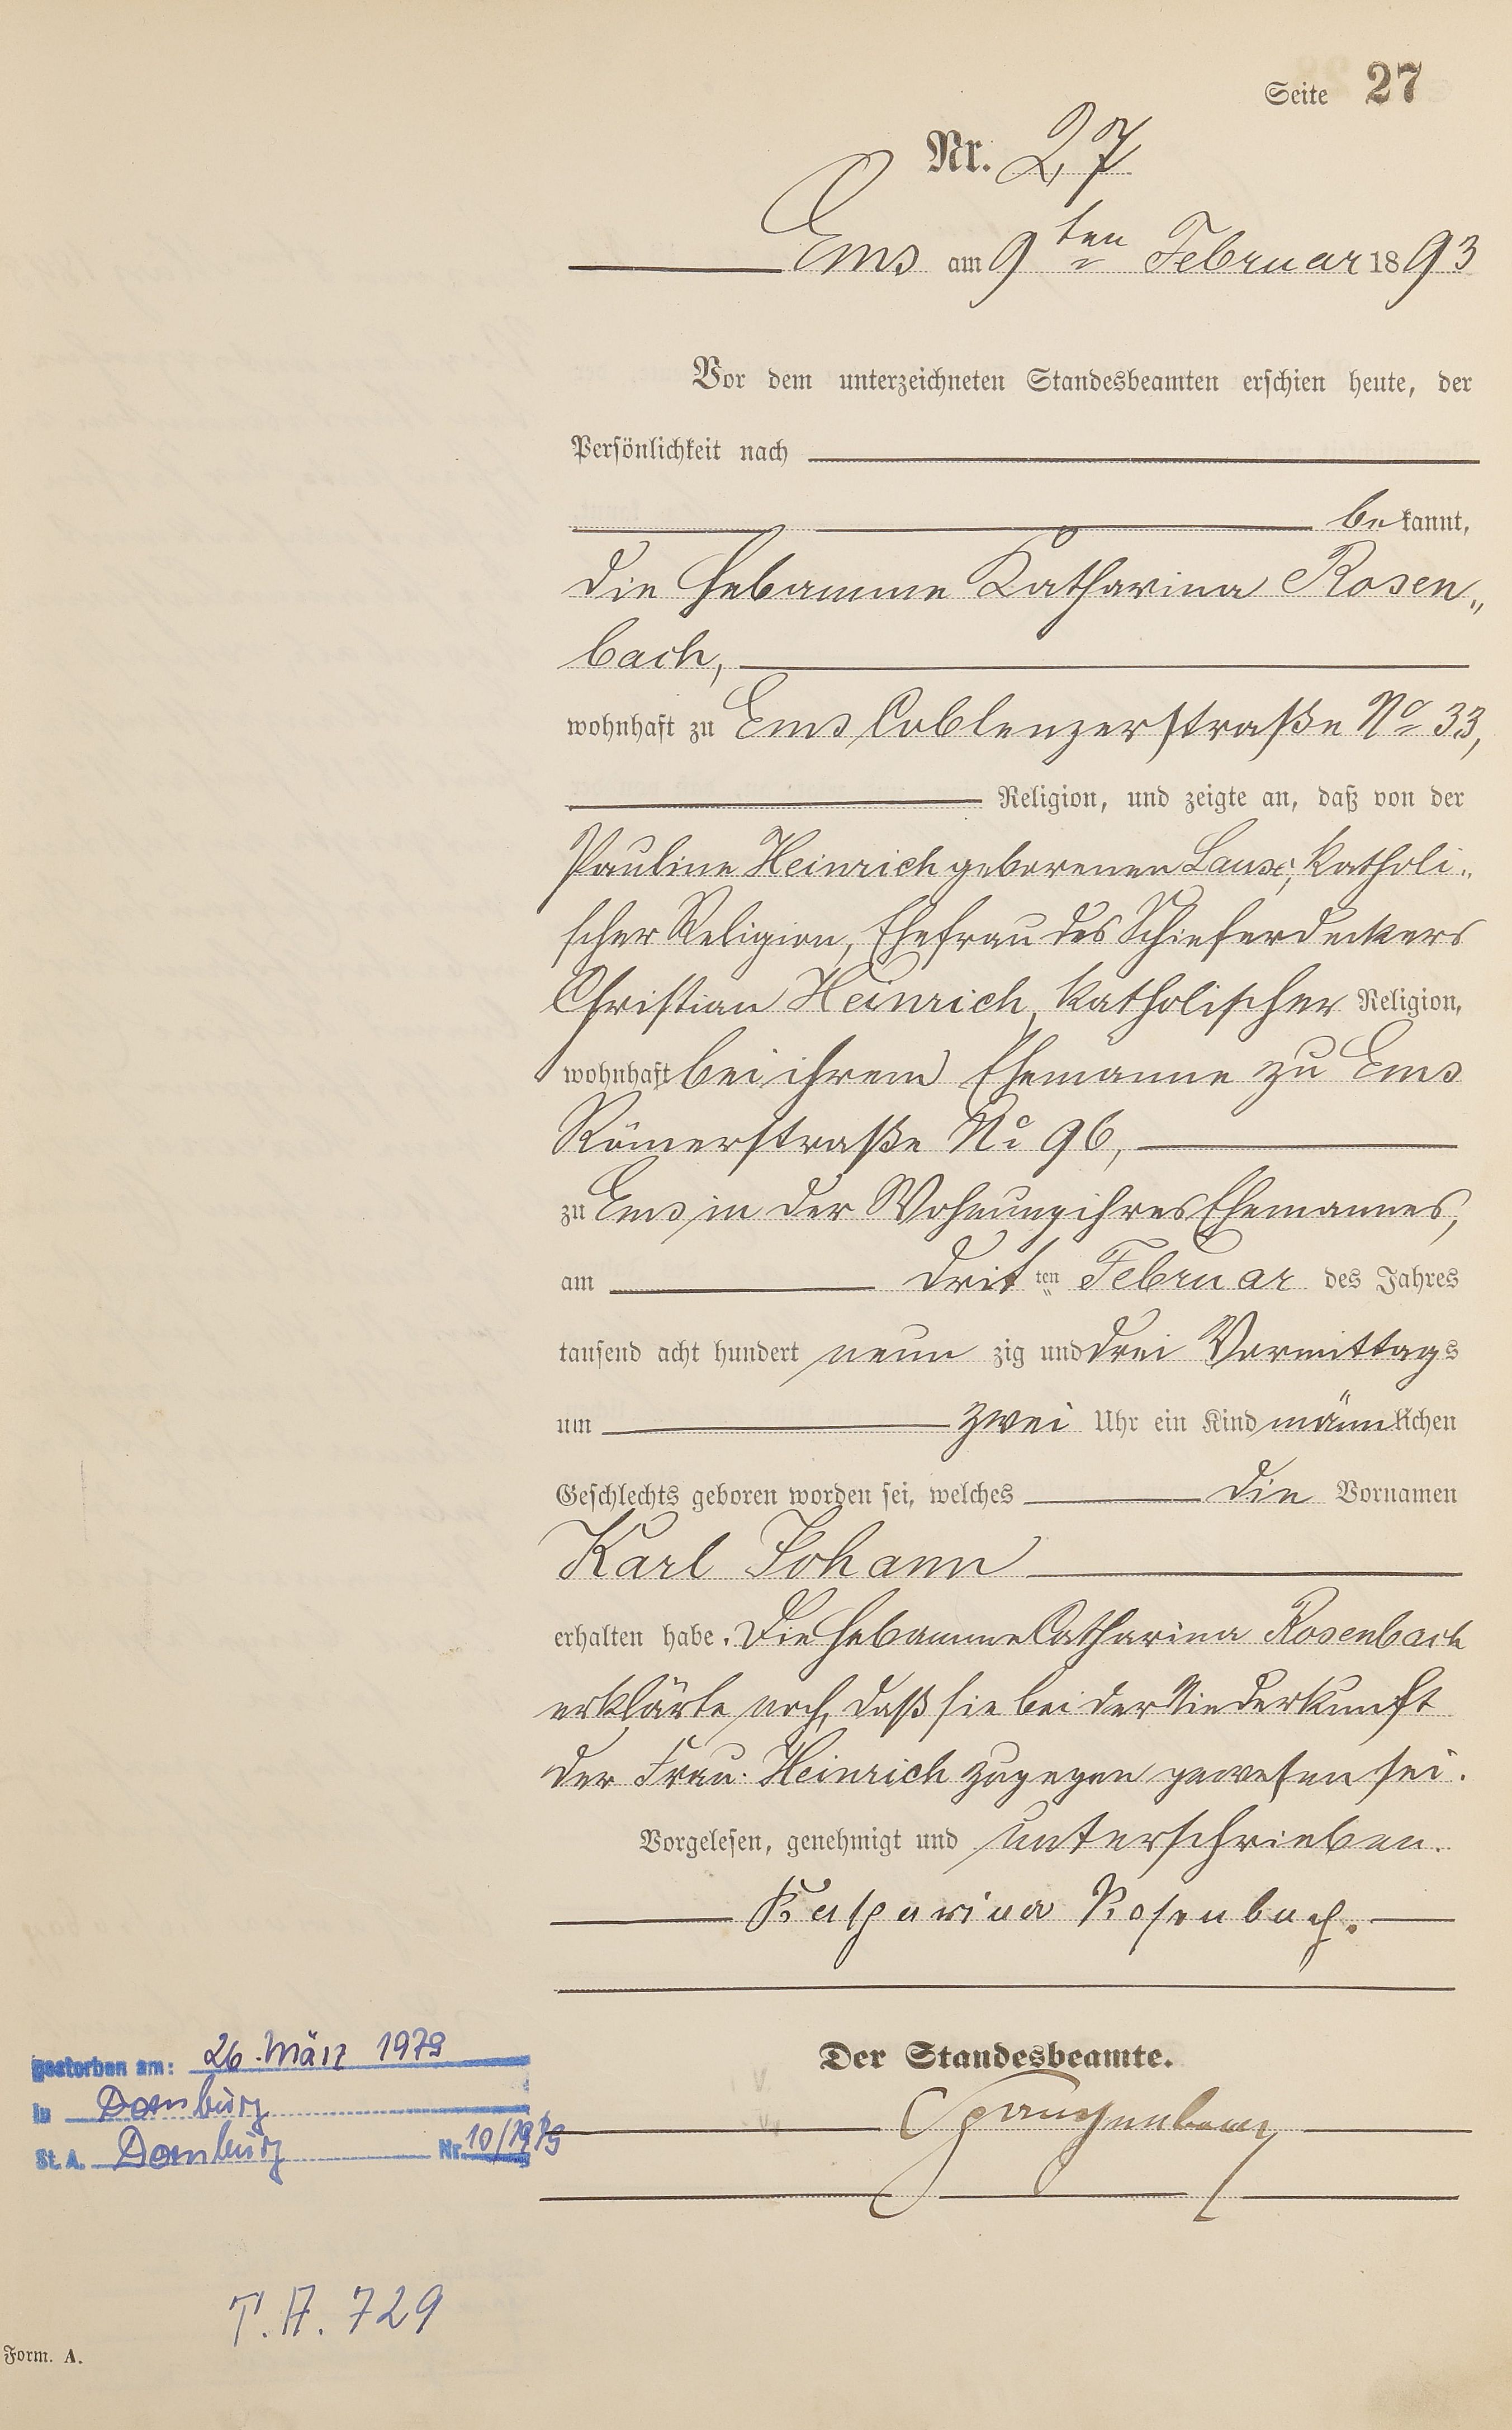 Seite 27
Nr. 27
Ems am 9ten Februar 1893
Vor dem unterzeichneten Standesbeamten erschien heute, der
Persönlichkeit nach
bekannt,
die Hebamme Katharina Rosen„
bach,
wohnhaft zu Ems Coblenzerstraße No 33,
Religion, und zeigte an, daß von der
Pauline Heinrich geborenen Laux, katholi„
scher Religion, Ehefrau des Schieferdeckers
Christian Heinrich, katholischer Religion,
wohnhaft bei ihrem Ehemanne zu Ems
Römerstraße No 96,
zu Ems in der Wohnung ihres Ehemannes,
am dritten Februar des Jahres
tausend acht hundert neun zig und drei Vormittags
um zwei Uhr ein Kind männlichen
Geschlechts geboren worden sei, welches die Vornamen
Karl Johann
erhalten habe. Die Hebamme Catharina Rosenbach
erklärte noch, daß sie bei der Niederkunft
der Frau Heinrich zugegen gewesen sei.
Vorgelesen, genehmigt und unterschrieben.
Katharina Rosenbach.
Der Standesbeamte.
gestorben am: 26. März 1979
in Dornburg
St. A. Dornburg Nr. 10/1979
T. A. 729
Form. A.